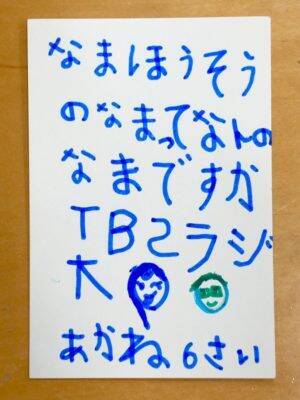 なまほうそう
のなまってなんの
なまですか
TBSラジ
オ
あかね6さい